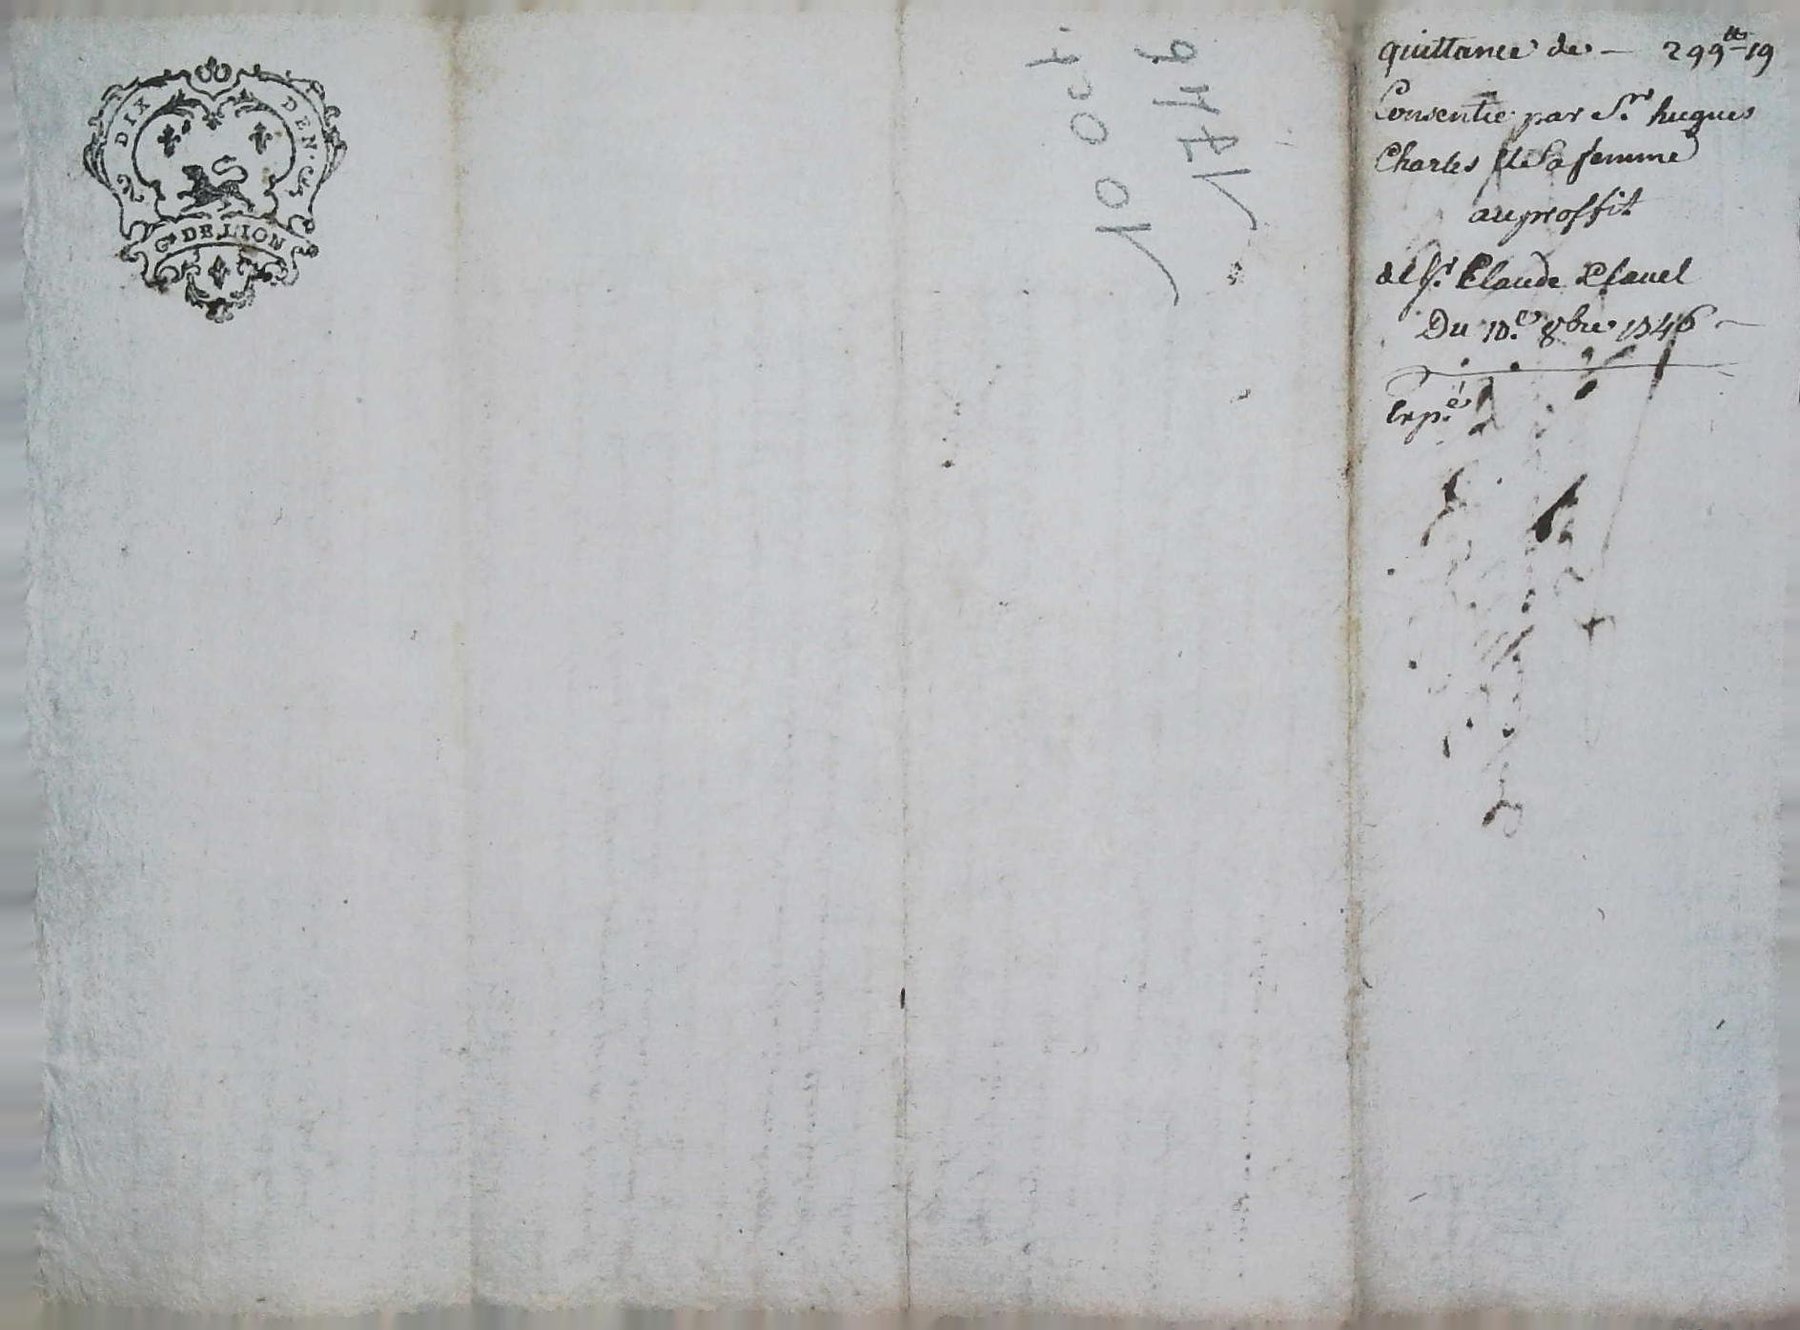 DIX DEN.
G. DE LION
1746
10 oct
quittance de — 299ᵗᵗ 19
Consentie par Sʳ. hugues
Charles et Sa femme
au proffit
de Sʳ. Claude Clauel
Du 10.ᵉ 8bre 1746 —
Exp.ᵉ